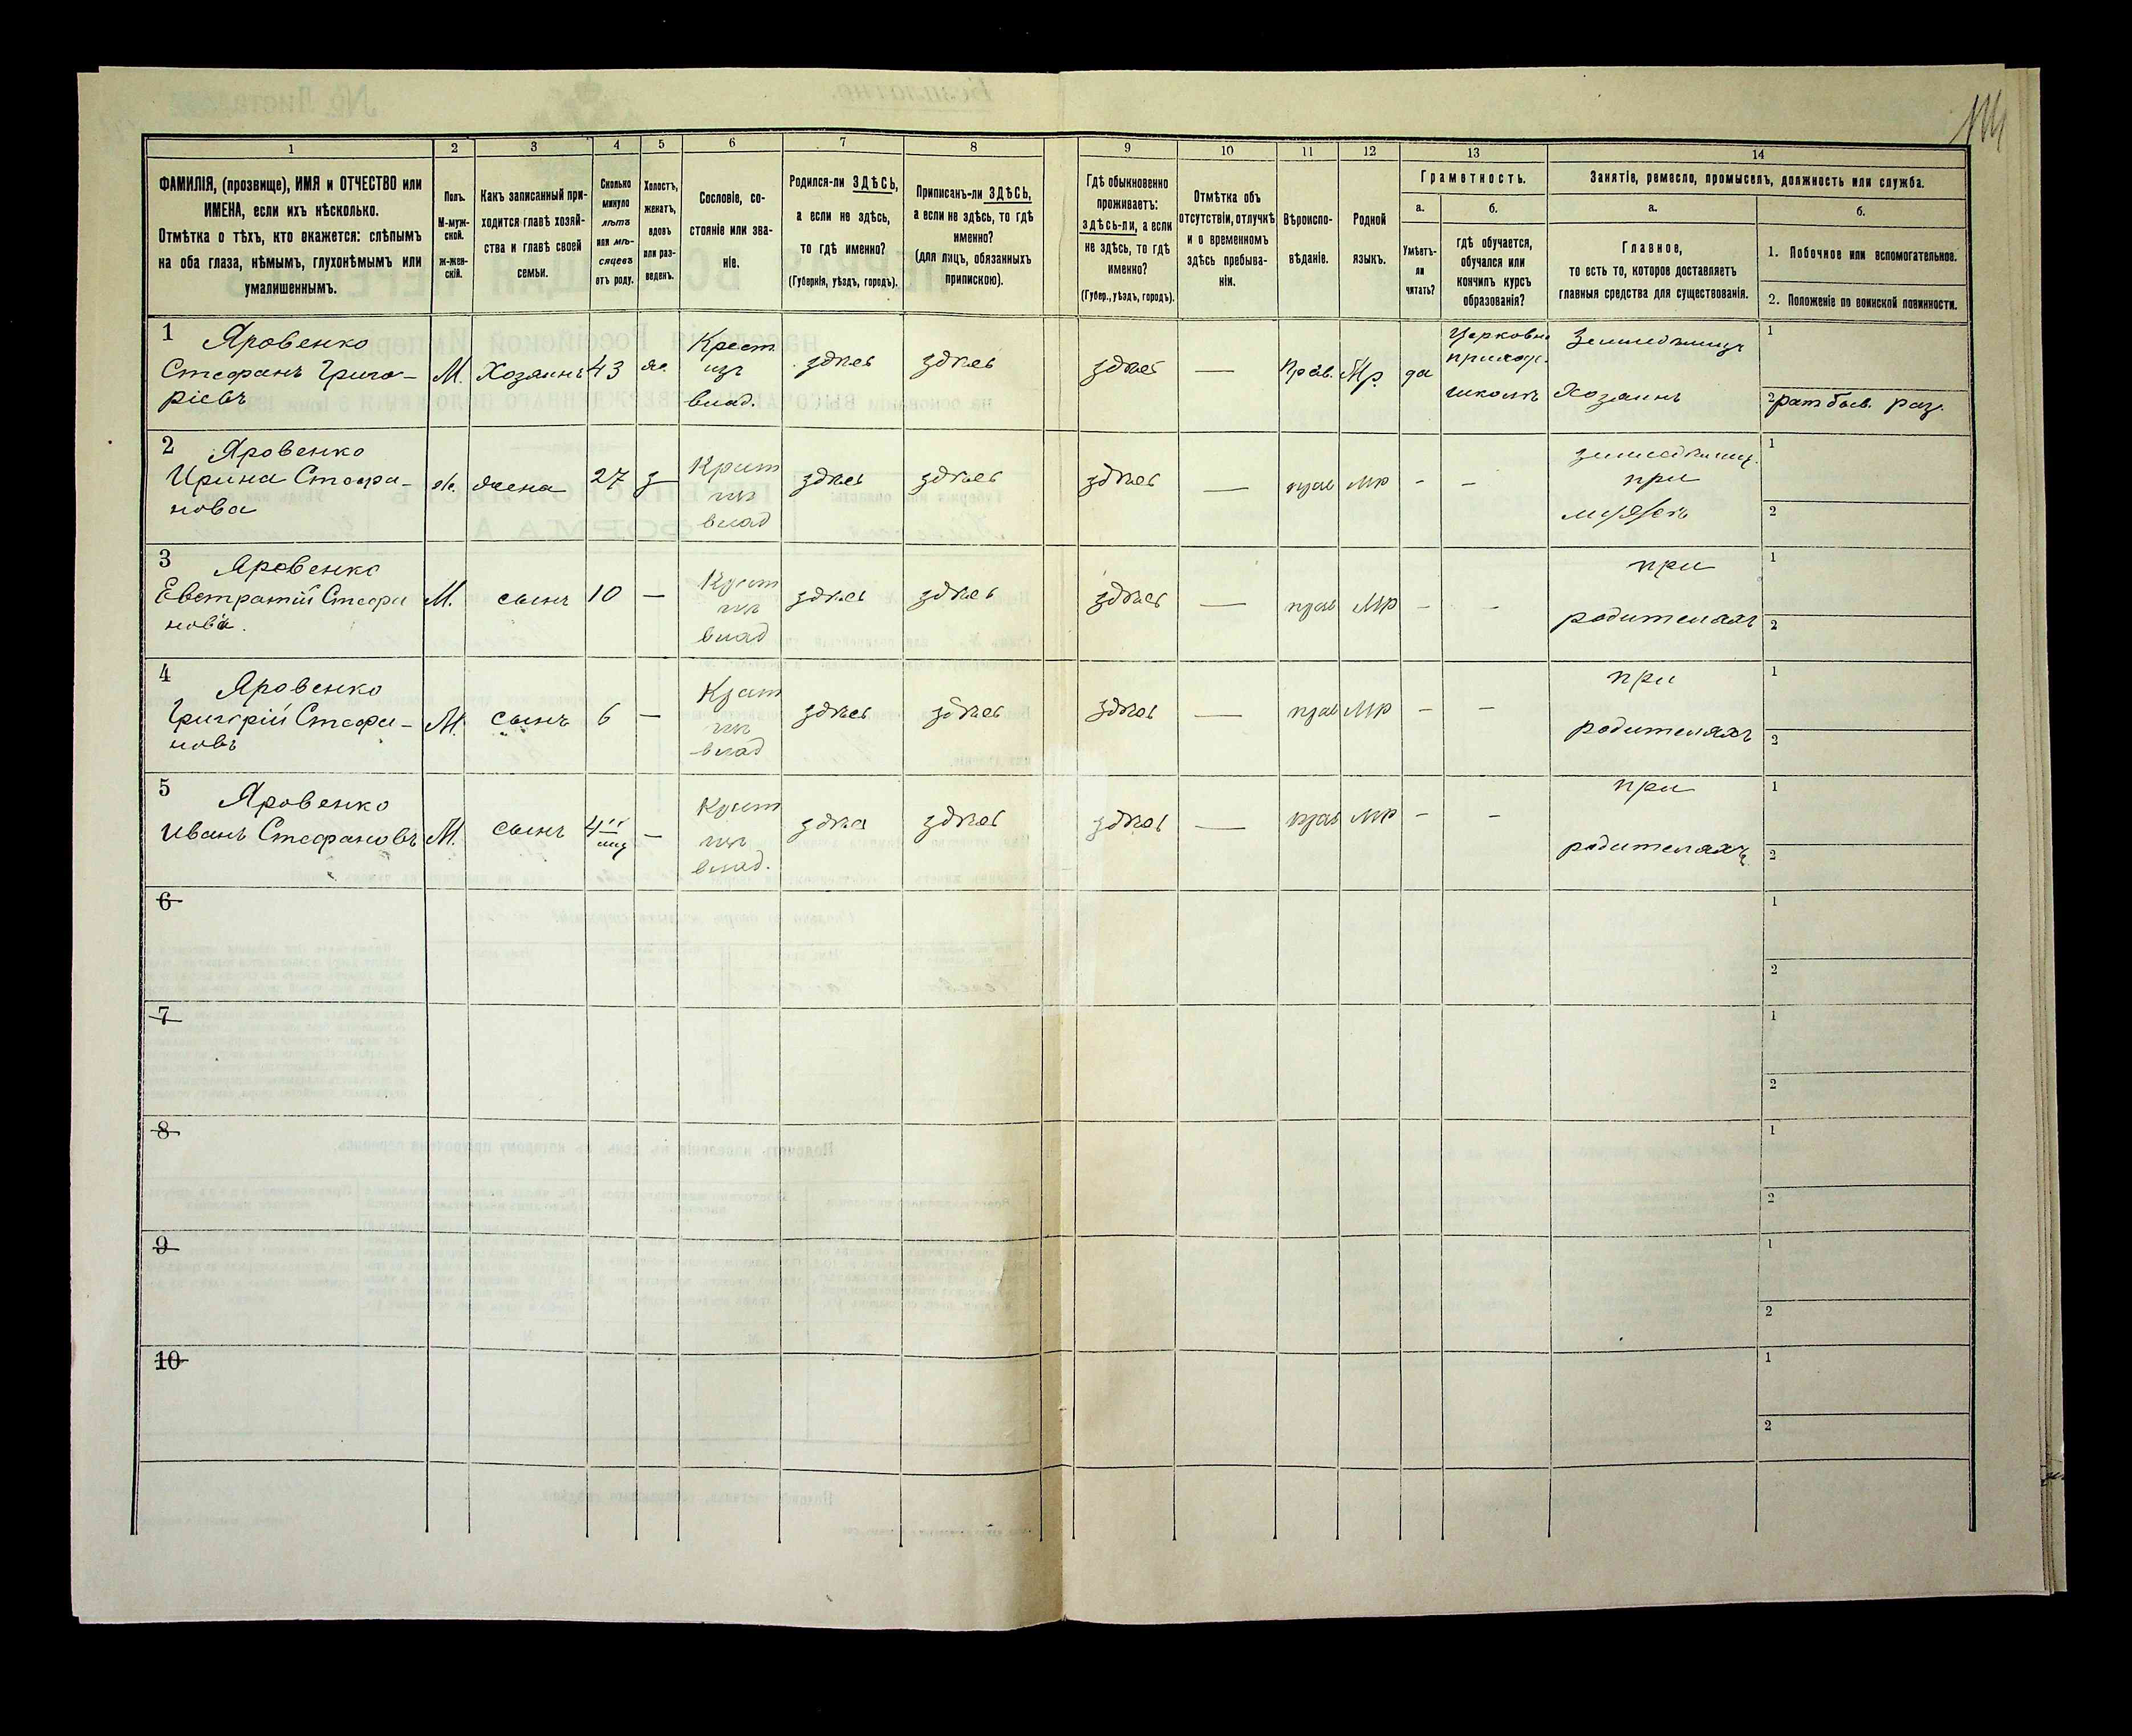 1 2 3 4 5 6 7 8 9 10 11 12 13 14
ФАМИЛІЯ, (прозвище), ИМЯ и ОТЧЕСТВО или
ИМЕНА, если ихъ нѣсколько.
Отмѣтка о тѣхъ, кто окажется: слѣпымъ
на оба глаза, нѣмымъ, глухонѣмымъ или
умалишеннымъ.
Полъ.
М-муж-
ской.
Ж-жен-
скій.
Какъ записанный при-
ходится главѣ хозяй-
ства и главѣ своей
семьи.
Сколько
минуло
лѣтъ
или мѣ-
сяцевъ
отъ роду.
Холостъ,
женатъ,
вдовъ
или раз-
веденъ.
Сословіе, со-
стояніе или зва-
ніе.
Родился-ли ЗДѢСЬ,
а если не здѣсь,
то гдѣ именно?
(Губернія, уѣздъ, городъ).
Приписанъ-ли ЗДѢСЬ,
а если не здѣсь, то гдѣ
именно?
(для лицъ, обязанныхъ
припискою).
Гдѣ обыкновенно
проживаетъ:
ЗДѢСЬ-ли, а если
не здѣсь, то гдѣ
именно?
(Губер., уѣздъ, городъ).
Отмѣтка объ
отсутствіи, отлучкѣ
и о временномъ
здѣсь пребыва-
ніи.
Вѣроиспо-
вѣданіе.
Родной
языкъ.
Грамотность.
а.
Умѣетъ-
ли
читать?
б.
гдѣ обучается,
обучался или
кончилъ курсъ
образованія?
Занятіе, ремесло, промыселъ, должность или служба.
а.
Главное,
то есть то, которое доставляетъ
главныя средства для существованія.
б.
1. Побочное или вспомогательное.
2. Положеніе по воинской повинности.
1 Яровенко
Стефанъ Григо-
ріевъ
М. Хозяинъ 43 ж.
Крест
изъ
влад.
здѣсь здѣсь здѣсь — Прав. Мр. да
Церковно
приход.
школѣ
Земледѣлецъ
Хозяинъ
1
2 рат
2 Яровенко
Ирина Стефа-
нова
ж. жена 27 з
Крест
изъ
влад
здѣсь здѣсь здѣсь — прав мр - -
земледѣлец.
при
мужѣ
1
2
3 Яровенко
Евстратій Стефа
новъ.
М. сынъ 10 —
Крест
изъ
влад
здѣсь здѣсь здѣсь — прав мр - -
при
родителяхъ
1
2
4 Яровенко
Григорій Стефа-
новъ
М. сынъ 6 —
Крест
изъ
влад
здѣсь здѣсь здѣсь — прав мр - -
при
родителяхъ
1
2
5 Яровенко
Иванъ Стефановъ
М. сынъ 4 —
Крест
изъ
влад.
здѣсь здѣсь здѣсь — прав мр - -
при
родителяхъ
1
2
6
1
2
7
1
2
8
1
2
9
1
2
10
1
2